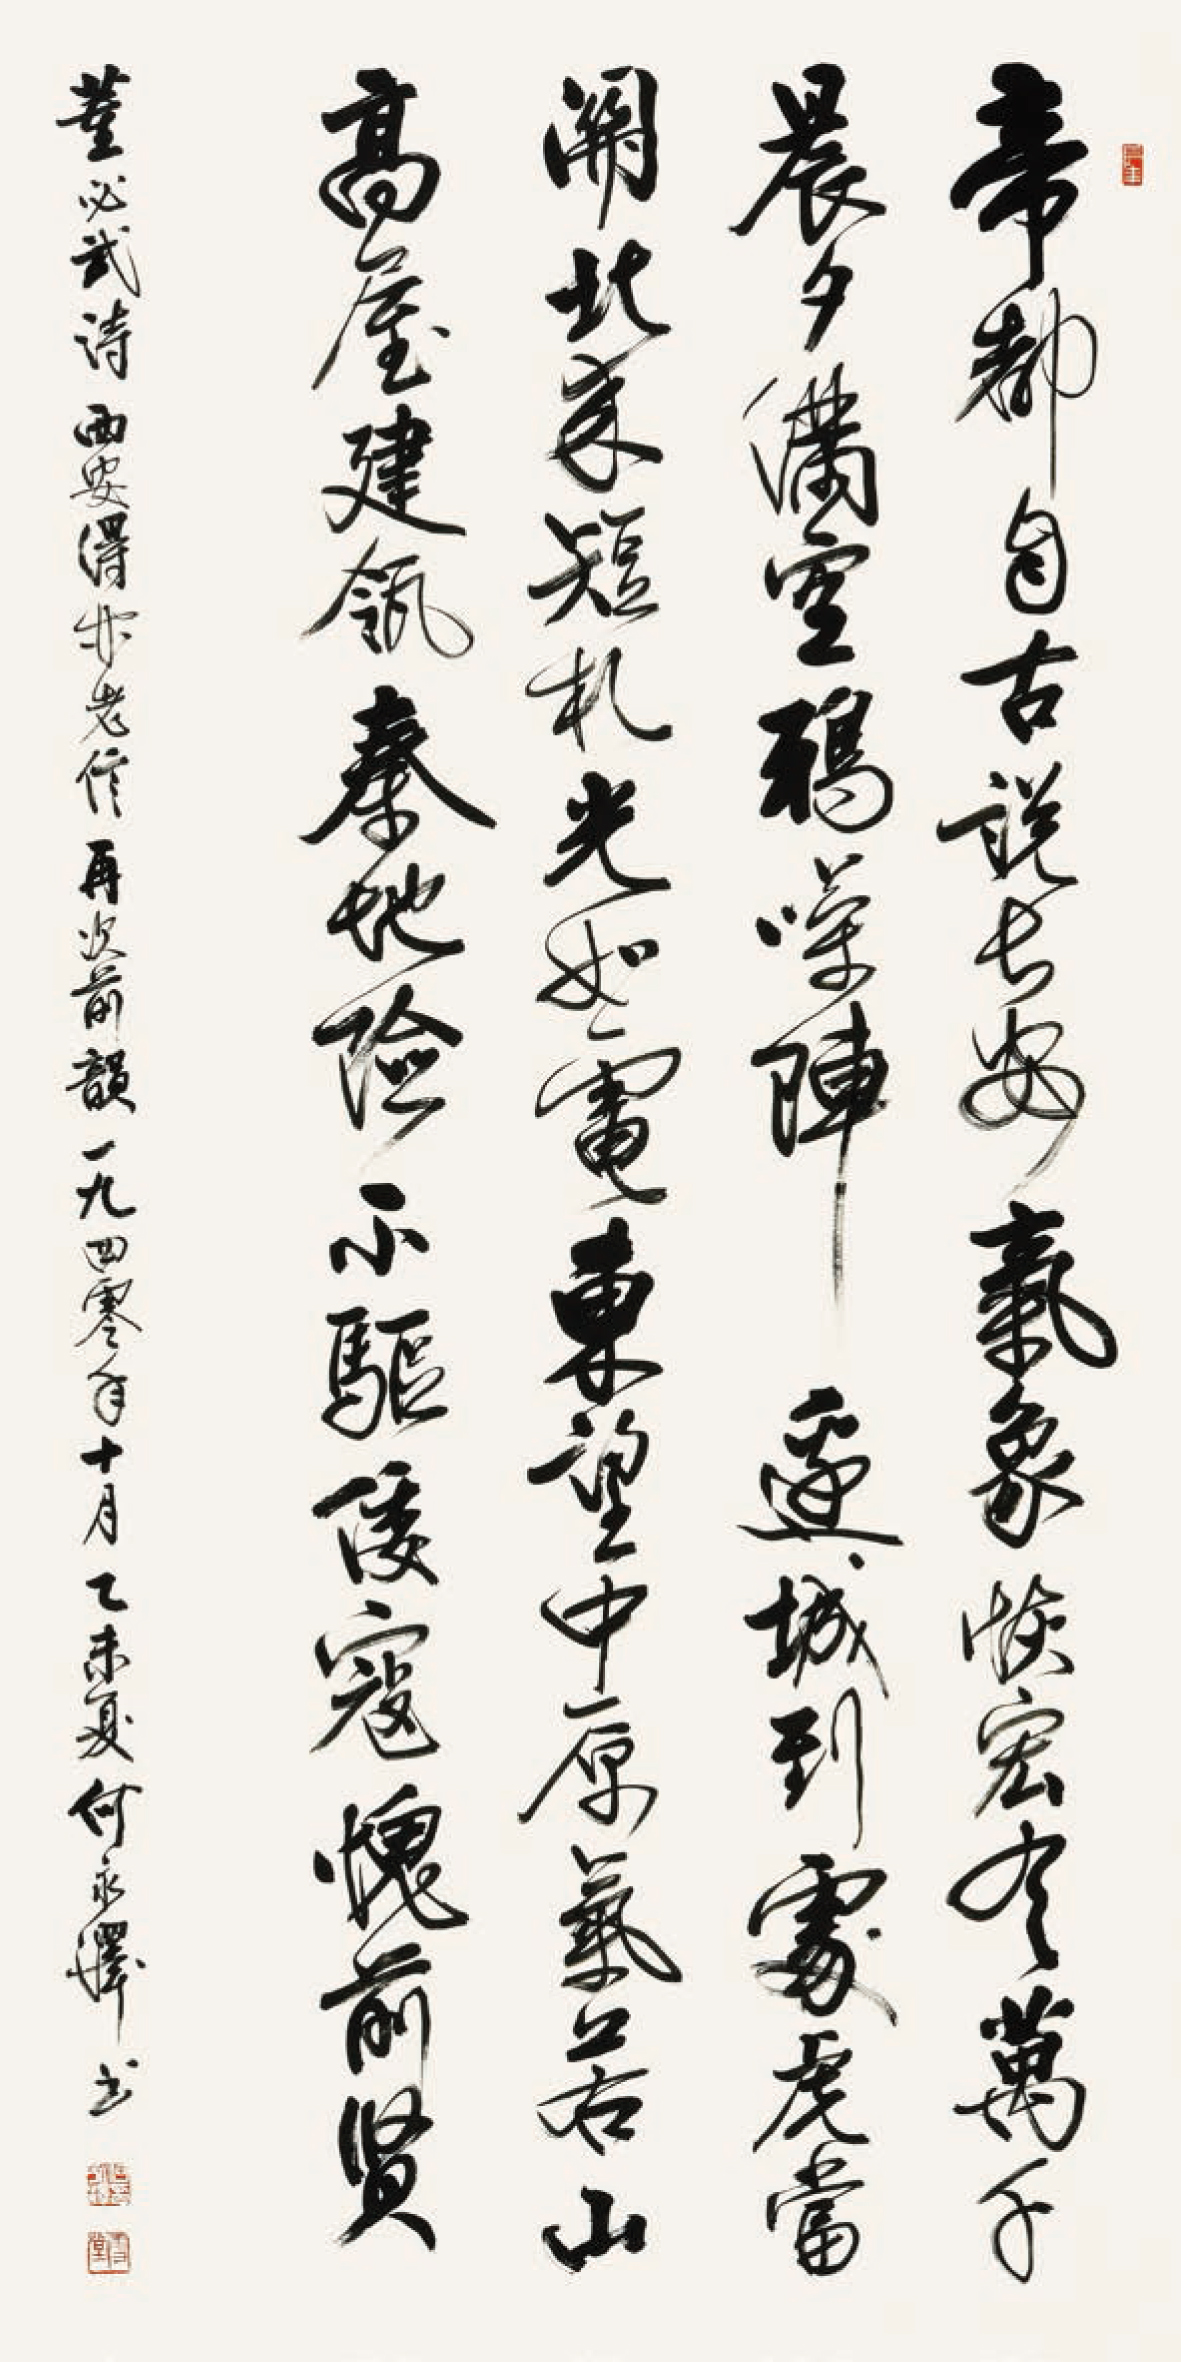 帝都自古說長安氣象恢宏有萬千
晨夕滿空鴉噪陣遶城到處虎當
關北來短札光如電東望中原氣若山
高屋建瓴秦地險不驅倭寇愧前賢
董必武詩 西安得林老信 再次前韻 一九四零年十月 乙未夏 何永澤書